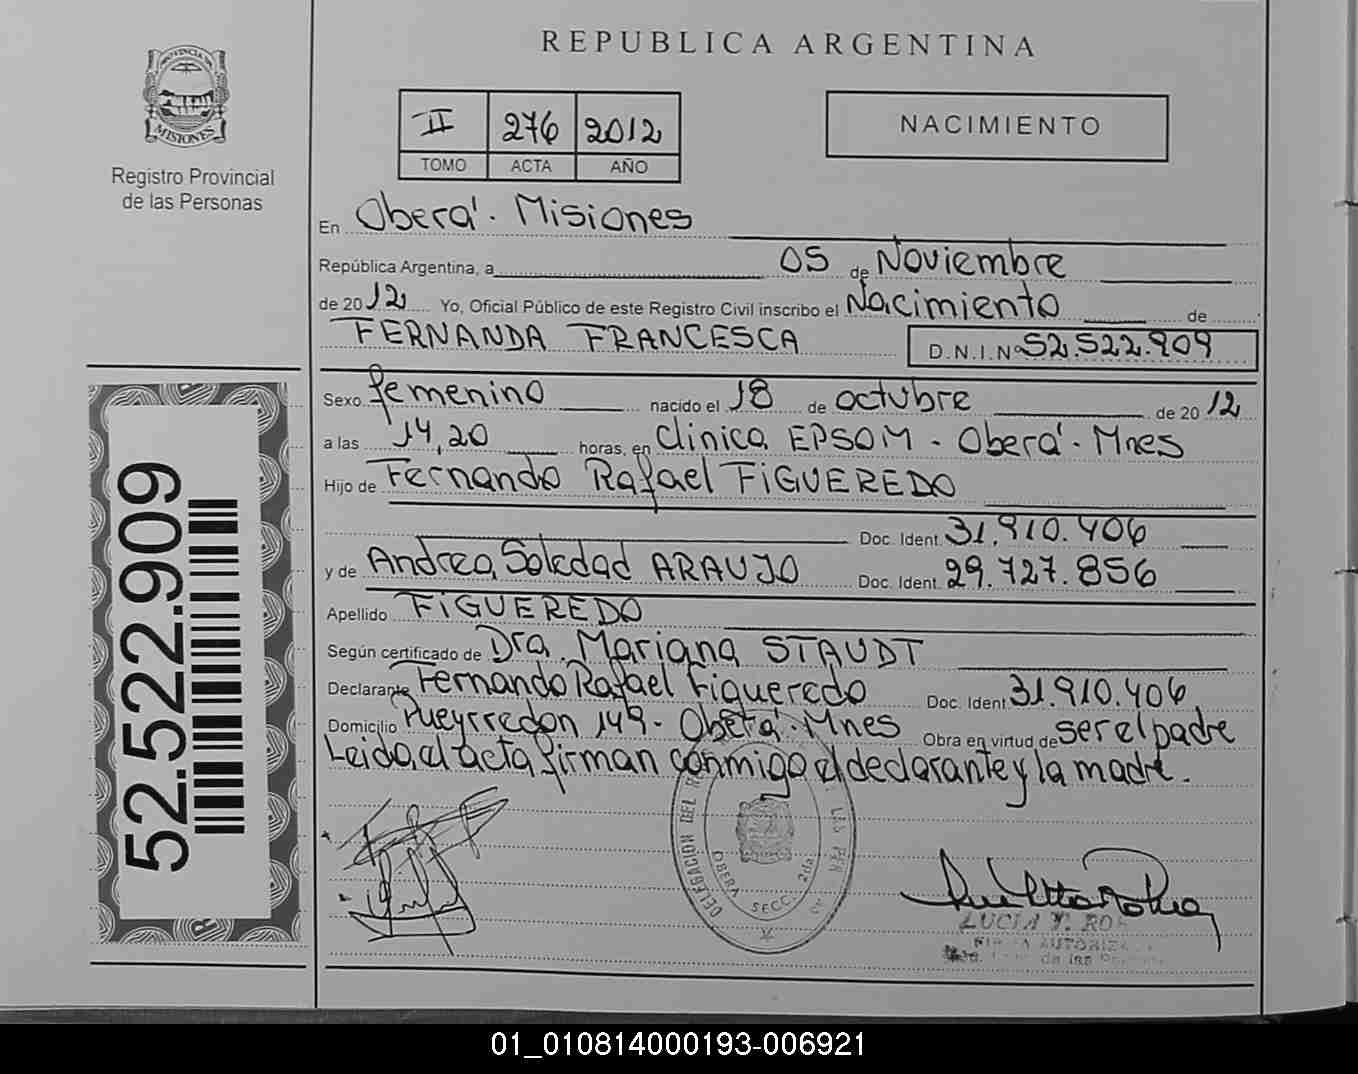 REPUBLICA ARGENTINA
PROVINCIA DE
MISIONES
Registro Provincial
de las Personas
II 276 2012
TOMO ACTA AÑO
NACIMIENTO
En Oberá. Misiones
República Argentina, a 05 de Noviembre
de 2012 Yo, Oficial Público de este Registro Civil inscribo el Nacimiento de
FERNANDA FRANCESCA D.N.I.Nº 52.522.909
Sexo femenino nacido el 18 de octubre de 2012
a las 14,20 horas, en Clínica EPSOM - Oberá - Mnes
Hijo de Fernando Rafael FIGUEREDO
Doc. Ident. 31.910.406
y de Andrea Soledad ARAUJO Doc. Ident. 29.727.856
Apellido FIGUEREDO
Según certificado de Dra. Mariana STAUDT
Declarante Fernando Rafael Figueredo Doc. Ident 31.910.406
Domicilio Pueyrredon 149 - Oberá - Mnes Obra en virtud de ser el padre
Leida el acta firman conmigo el declarante y la madre.
52.522.909
DELEGACION DEL
OBERA SECC. 2da
LUCIA
AUTORIZA
de las
01_010814000193-006921